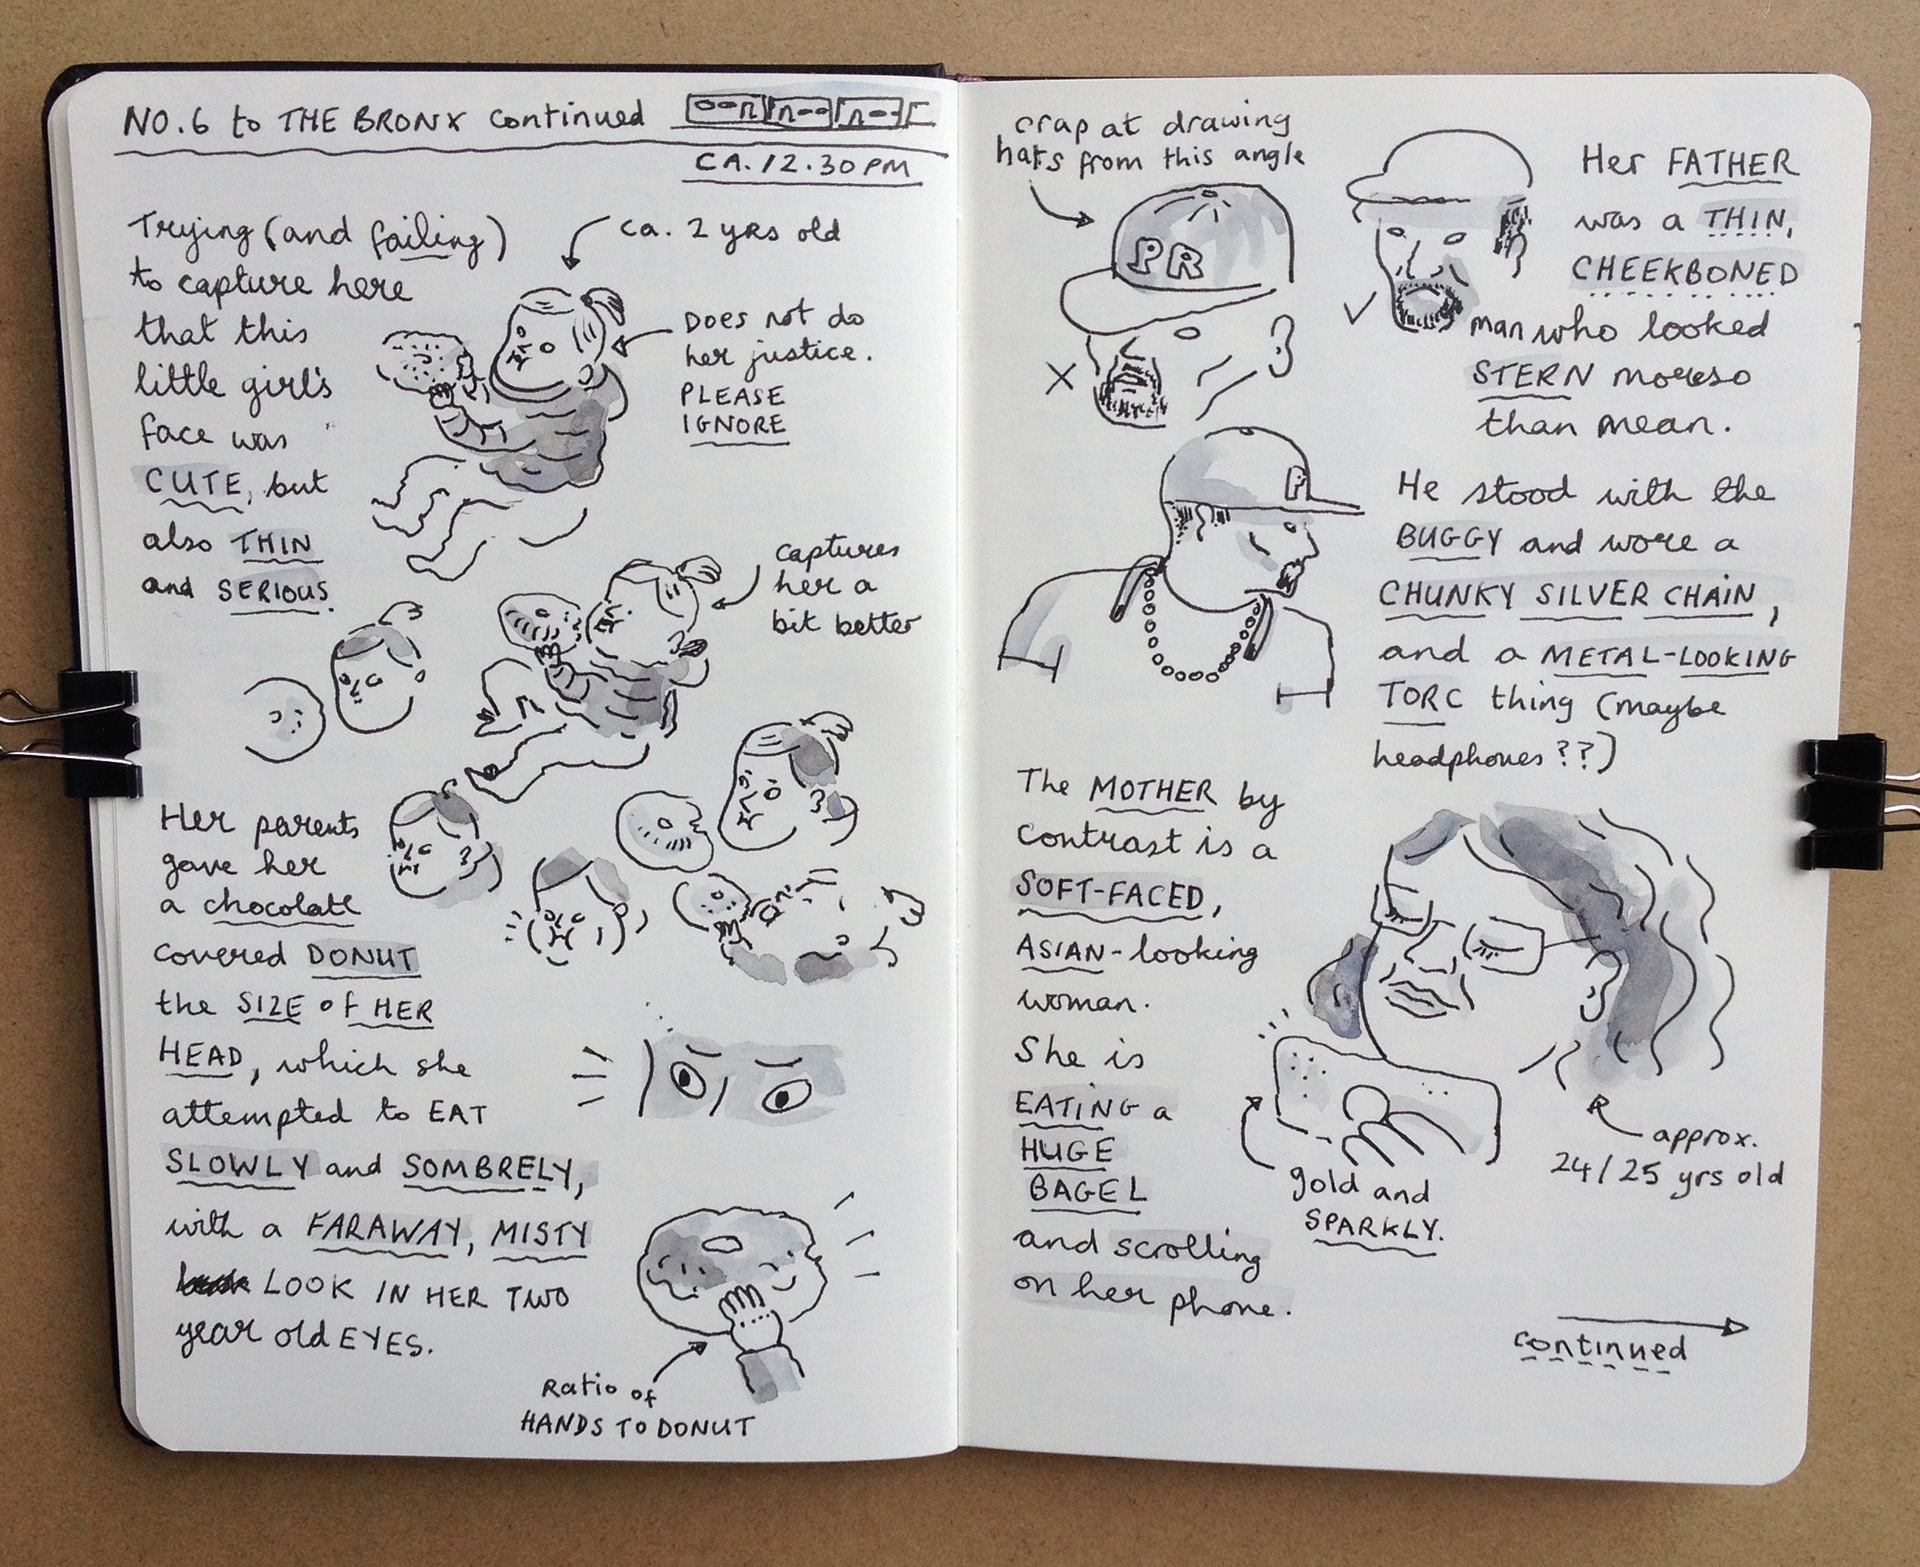 NO.6 to THE BRONX continued
CA. 12.30PM
Trying (and failing)
to capture here
that this
little girl's
face was
CUTE, but
also THIN
and SERIOUS.
ca. 2 yrs old
DOES NOT do
her justice.
PLEASE
IGNORE
captures
her a
bit better
Her parents
gave her
a chocolate
covered DONUT
the SIZE of HER
HEAD, which she
attempted to EAT
SLOWLY and SOMBRELY,
with a FARAWAY, MISTY
LOOK IN HER TWO
year old EYES.
Ratio of
HANDS TO DONUT
crap at drawing
hats from this angle
PR
P
Her FATHER
was a THIN,
CHEEKBONED
man who looked
STERN moreso
than mean.
He stood with the
BUGGY and wore a
CHUNKY SILVER CHAIN,
and a METAL-LOOKING
TORC thing (maybe
headphones??)
The MOTHER by
contrast is a
SOFT-FACED,
ASIAN-looking
woman.
She is
EATING a
HUGE
BAGEL
and scrolling
on her phone.
gold and
SPARKLY.
approx.
24/25 yrs old
continued